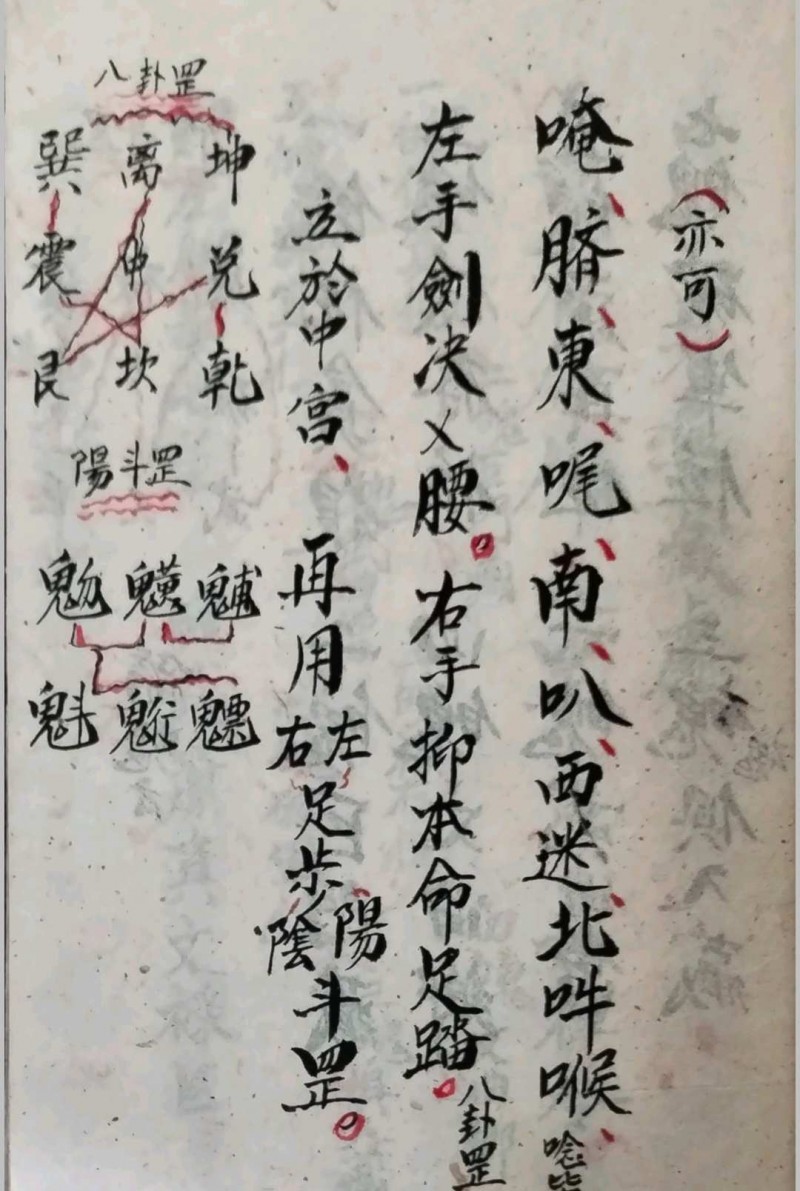 （亦可）
唵、臍、東、唲、南、叭、西迷、北吽喉、唸毕
左手劍决乂腰。右手抑本命足踏。八卦罡
立於中宮、再用左右足步陽陰斗罡。
八卦罡
坤 离 巽
兑 中 震
乾 坎 艮
陽斗罡
魓 䰢 魩
魒 䰢 魁